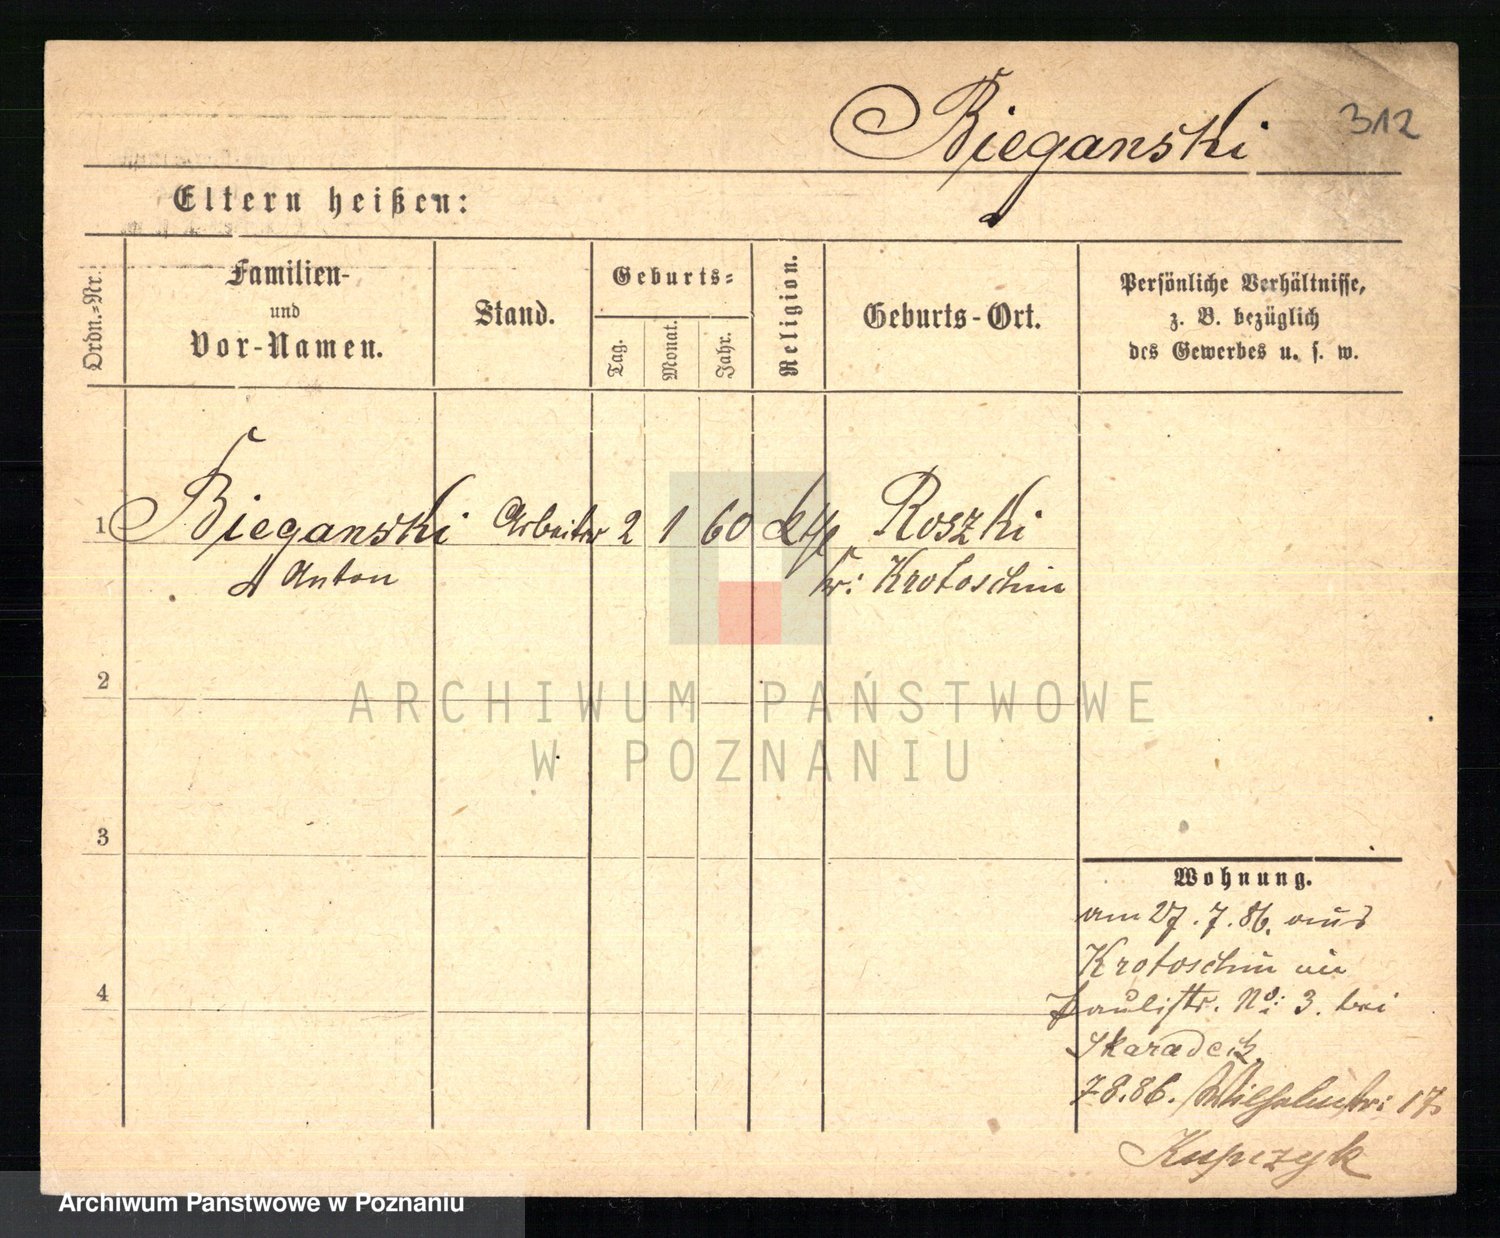 Bieganski 312
Eltern heißen:
Ordn.-Nr.
Familien-
und
Vor-Namen.
Stand.
Geburts-
Tag.
Monat.
Jahr.
Religion.
Geburts-Ort.
Persönliche Verhältnisse,
z. B. bezüglich
des Gewerbes u. s. w.
1 Bieganski Arbeiter 2 1 60 kth Roszki
Anton Kr: Krotoschin
2
3
4
Wohnung.
am 27.7.86. aus
Krotoschin in
Paulistr. No: 3. bei
Skaradek
7.8.86. Wilhelmstr: 17.
Kupczyk
ARCHIWUM PAŃSTWOWE
W POZNANIU
Archiwum Państwowe w Poznaniu